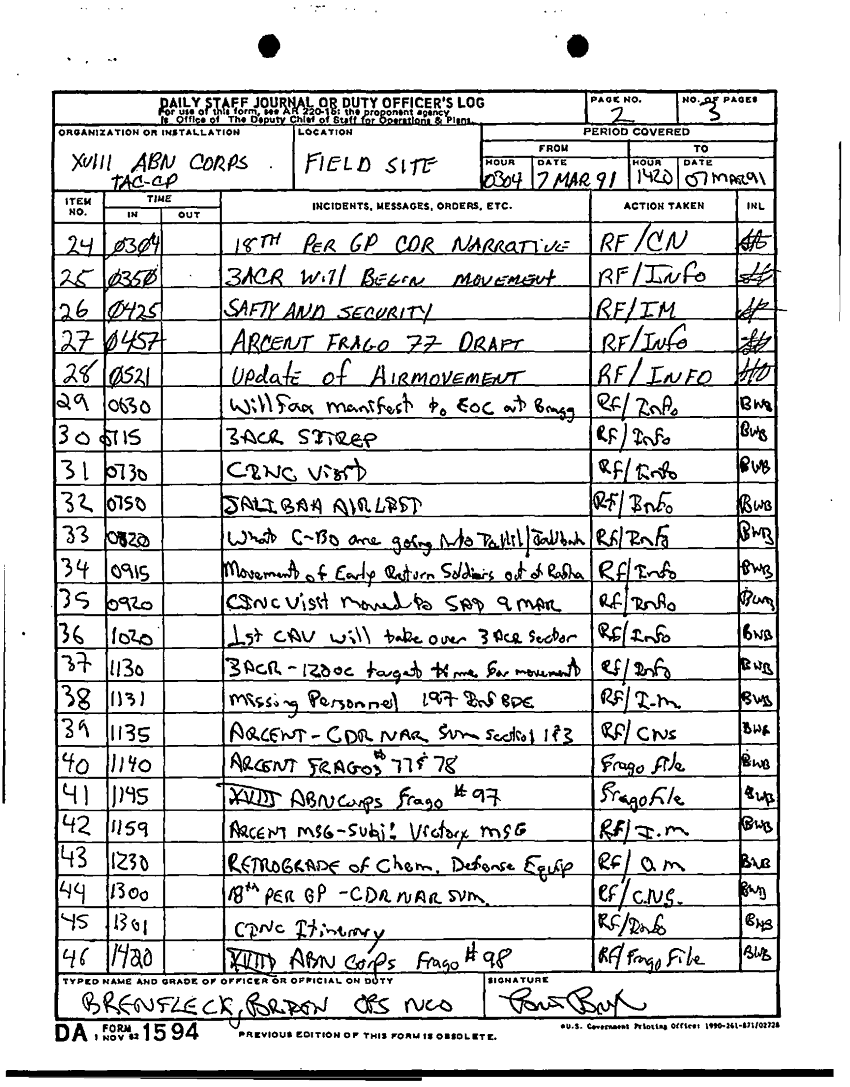 DAILY STAFF JOURNAL OR DUTY OFFICER'S LOG
For use of this form, see AR 220-15; the proponent agency
is Office of The Deputy Chief of Staff for Operations & Plans.
PAGE NO. 2
NO. OF PAGES 3
ORGANIZATION OR INSTALLATION
XVIII ABN CORPS
TAC-CP
LOCATION
FIELD SITE
PERIOD COVERED
FROM TO
HOUR DATE HOUR DATE
0304 7 MAR 91 1420 07 MAR 91
ITEM NO. TIME IN OUT INCIDENTS, MESSAGES, ORDERS, ETC. ACTION TAKEN INL
24 0304 18TH PER GP CDR NARRATIVE RF/CN
25 0350 3ACR Will BEGIN MOVEMENT RF/INFO
26 0425 SAFTY AND SECURITY RF/IM
27 0457 ARCENT FRAGO 77 DRAFT RF/INFO
28 0521 UPdate of AIRMOVEMENT RF/INFO
29 0630 Will Fax manifest to EOC at Bragg RF/Info BWB
30 0715 3ACR SITREP RF/Info BWB
31 0730 CINC Visit RF/Info BWB
32 0750 JALIBAH AIRLIST RF/Info BWB
33 0820 What C-130 are going into Tallil/Jalibah RF/Info BWB
34 0915 Movement of Early Return Soldiers out of Rafha RF/Info BWB
35 0920 CINC Visit moved to SAT 9 MAR RF/Info BWB
36 1020 1st CAV will take over 3ACR sector RF/Info BWB
37 1130 3ACR - 1200C target time for movement RF/Info BWB
38 1131 missing Personnel 197 Inf BDE RF/I.m. BWB
39 1135 ARCENT - CDR NAR Sum section 1&3 RF/CNS BWB
40 1140 ARCENT FRAGOS # 77 & 78 Frago File BWB
41 1145 XVIII ABN Corps Frago # 97 Frago File BWB
42 1159 ARCENT MSG-Subj: Victory MSG RF/I.m BWB
43 1230 RETROGRADE of Chem. Defense Equip RF/O.m BWB
44 1300 18th PER GP - CDR NAR SUM. RF/C.NS. BWB
45 1301 CINC Itinerary RF/Info BWB
46 1420 XVIII ABN Corps Frago # 98 RF/Frago File BWB
TYPED NAME AND GRADE OF OFFICER OR OFFICIAL ON DUTY
BRENFLECK, OPS NCO
SIGNATURE
DA FORM 1 NOV 62 1594
PREVIOUS EDITION OF THIS FORM IS OBSOLETE.
U.S. Government Printing Office: 1990-261-871/02728